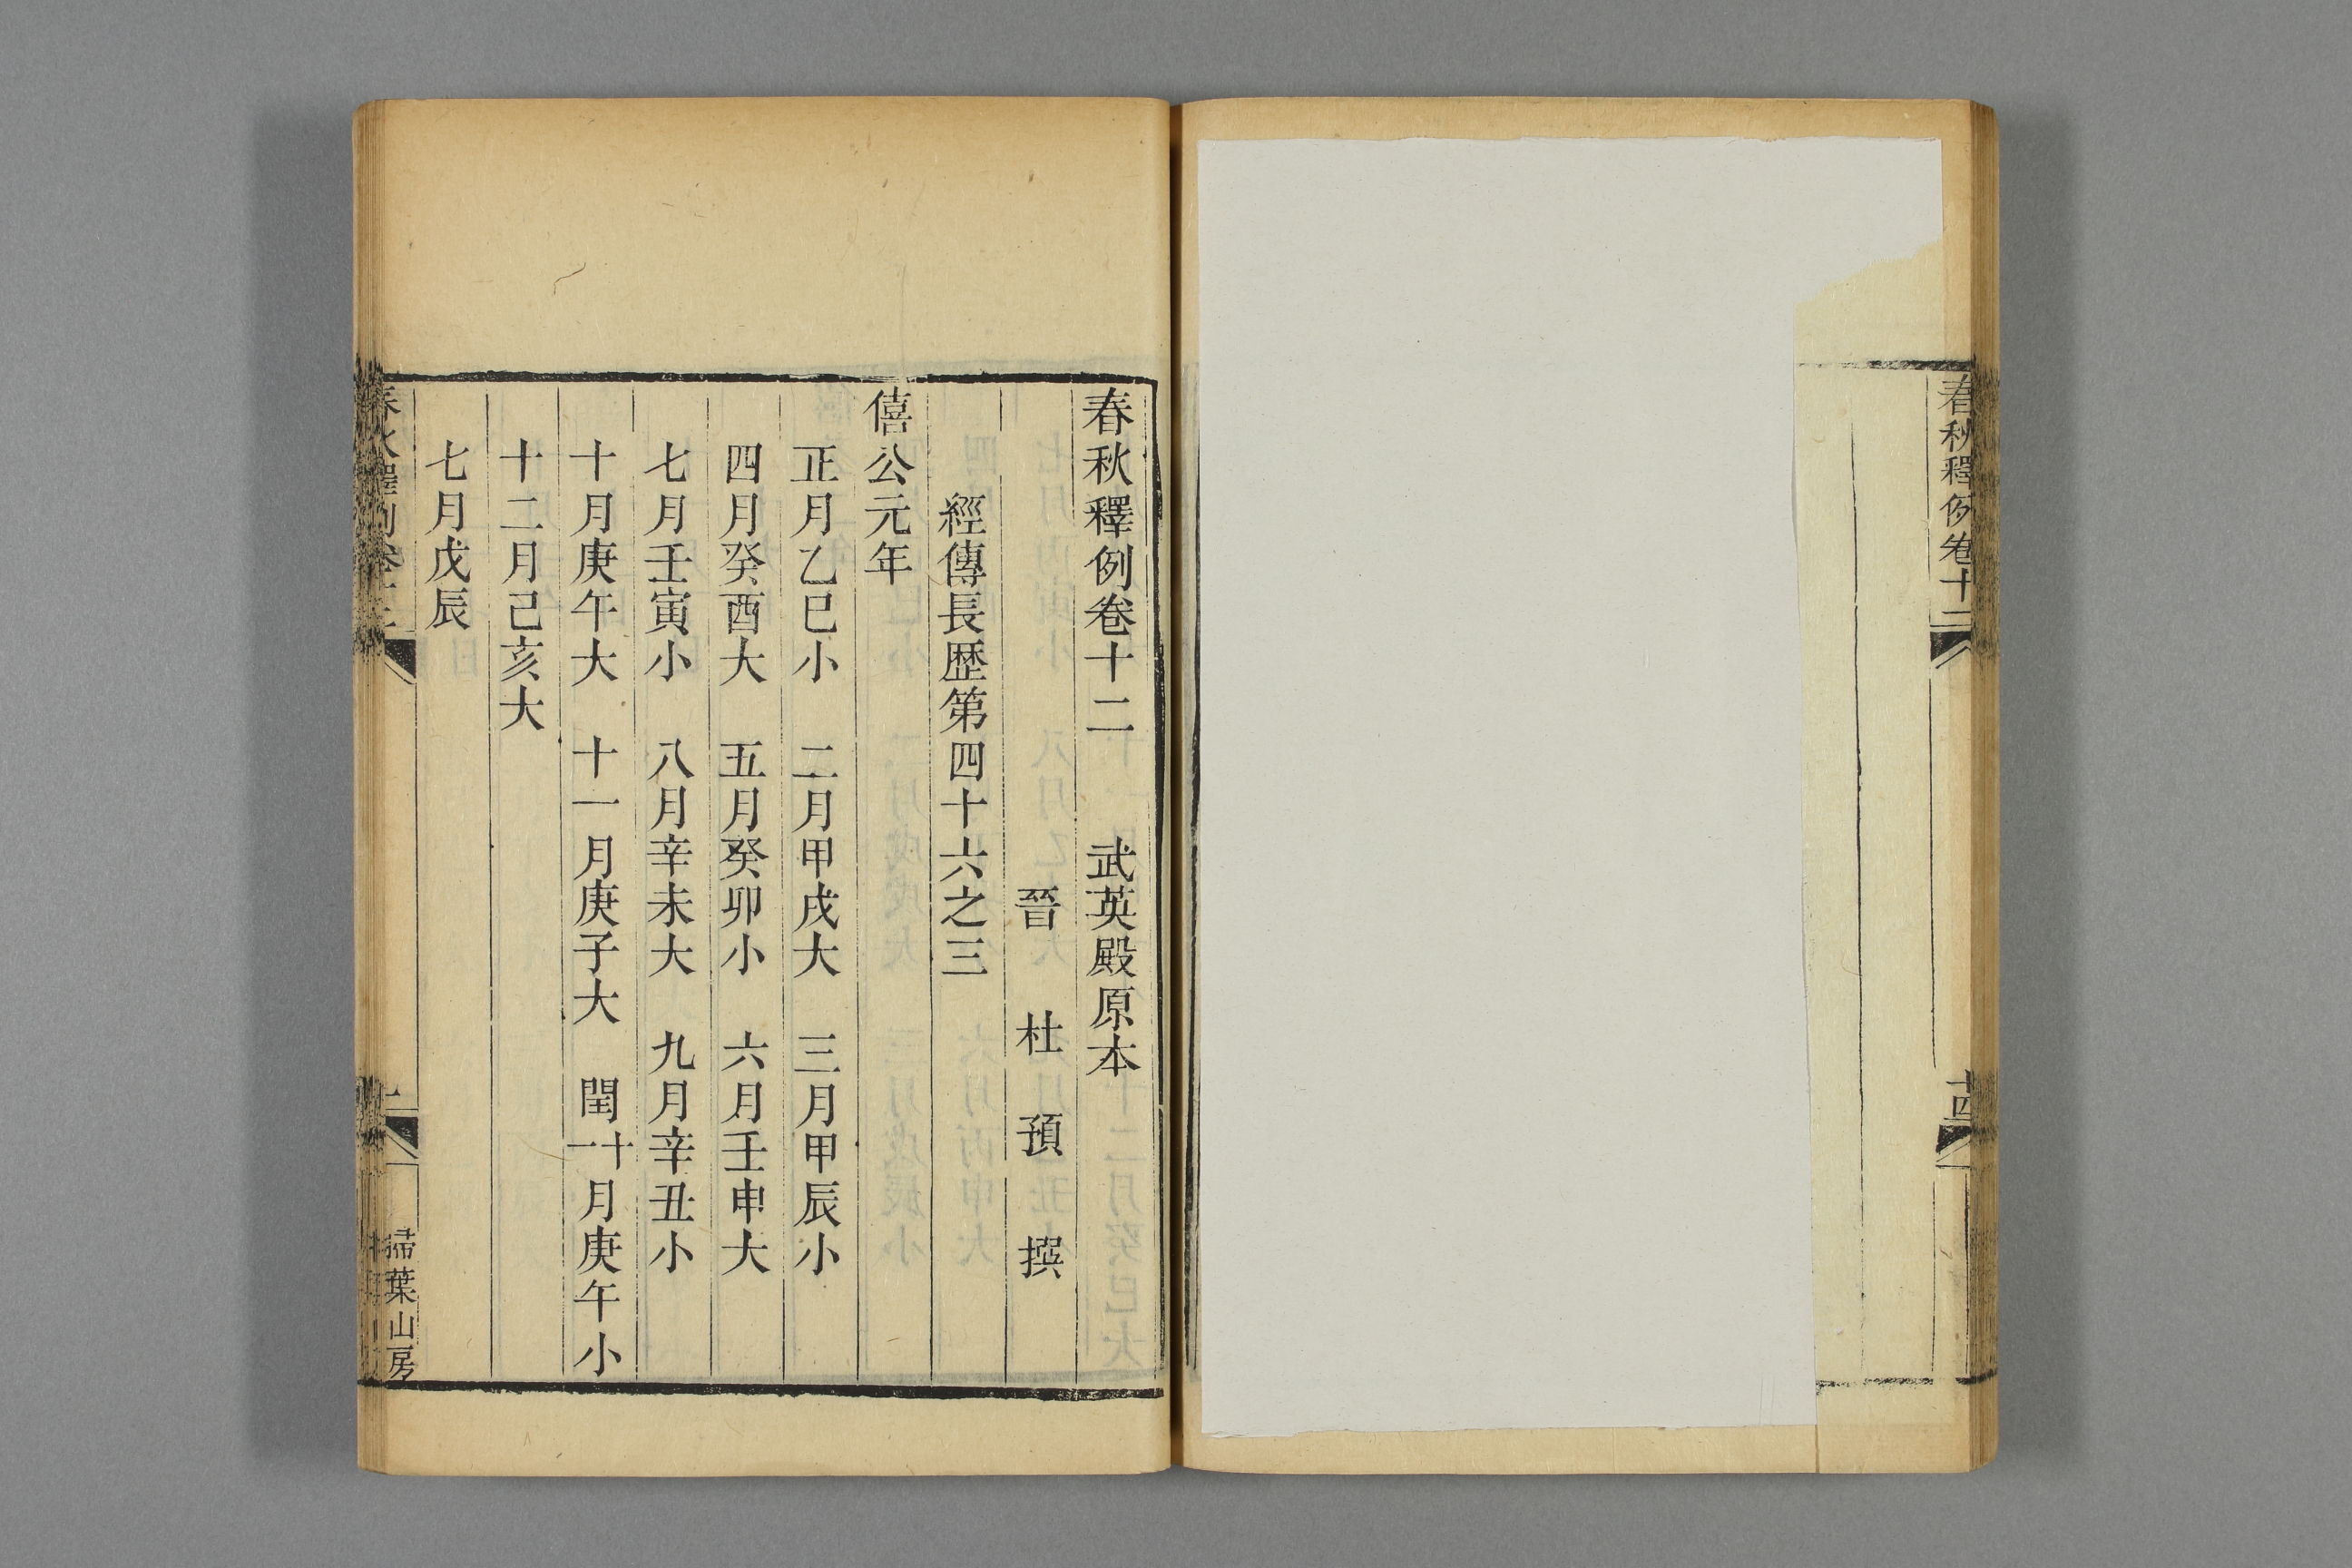 春秋釋例卷十二
十四
春秋釋例卷十二 武英殿原本
晉 杜 預 撰
經傳長歴第四十六之三
僖公元年
正月乙巳小 二月甲戌大 三月甲辰小
四月癸酉大 五月癸卯小 六月壬申大
七月壬寅小 八月辛未大 九月辛丑小
十月庚午大 十一月庚子大 閏十一月庚午小
十二月己亥大
七月戊辰
春秋釋例卷十二
一
掃葉山房